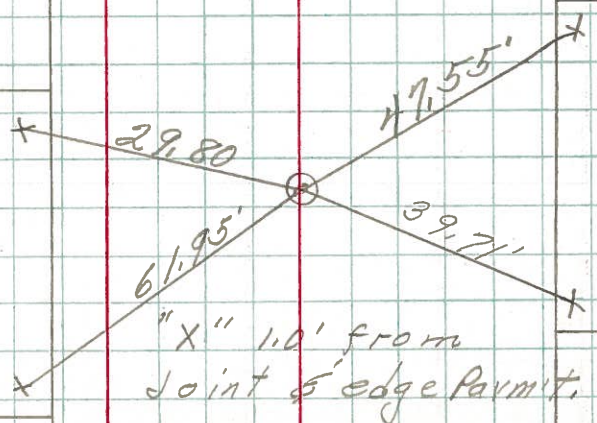 47.55'
29.80
39.71'
61.95'
"X" 1.0' from
Joint & edge Pavm't.